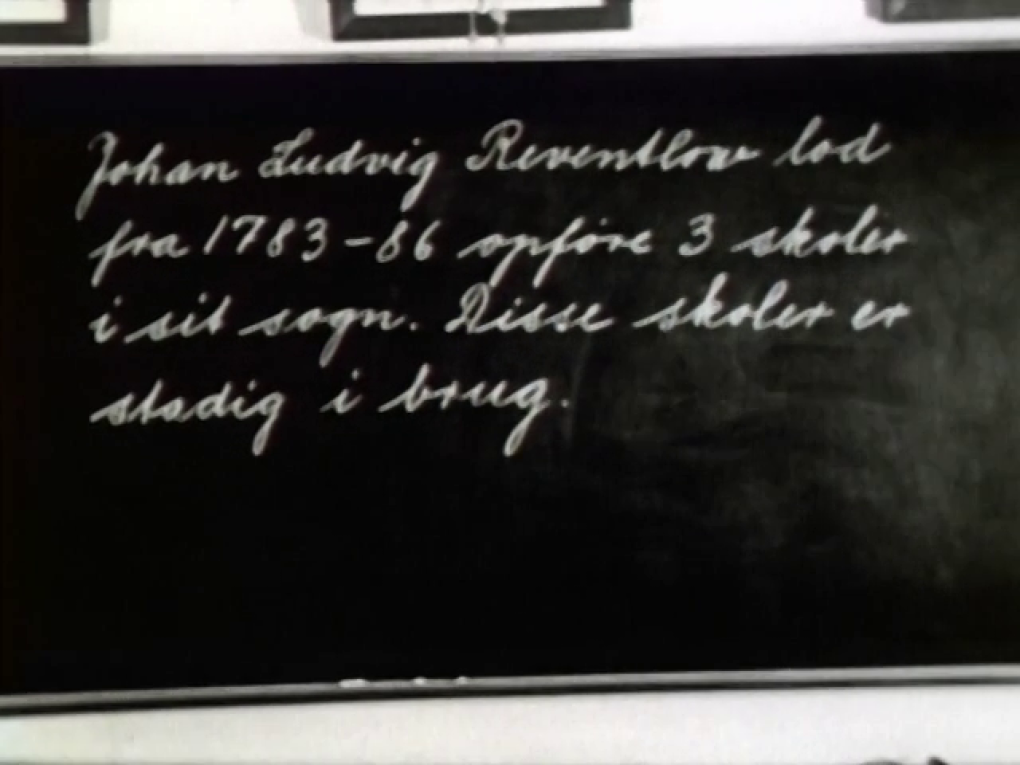 Johan Ludvig Reventlow lod
fra 1783-86 opføre 3 skoler
i sit sogn. Disse skoler er
stadig i brug.